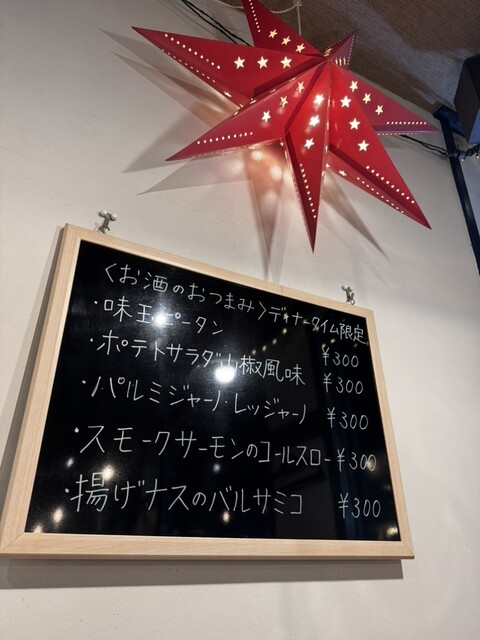 〈お酒のおつまみ〉ディナータイム限定
・味玉ピータン ¥300
・ポテトサラダ山椒風味 ¥300
・パルミジャーノ・レッジャーノ ¥300
・スモークサーモンのコールスロー ¥300
・揚げナスのバルサミコ ¥300